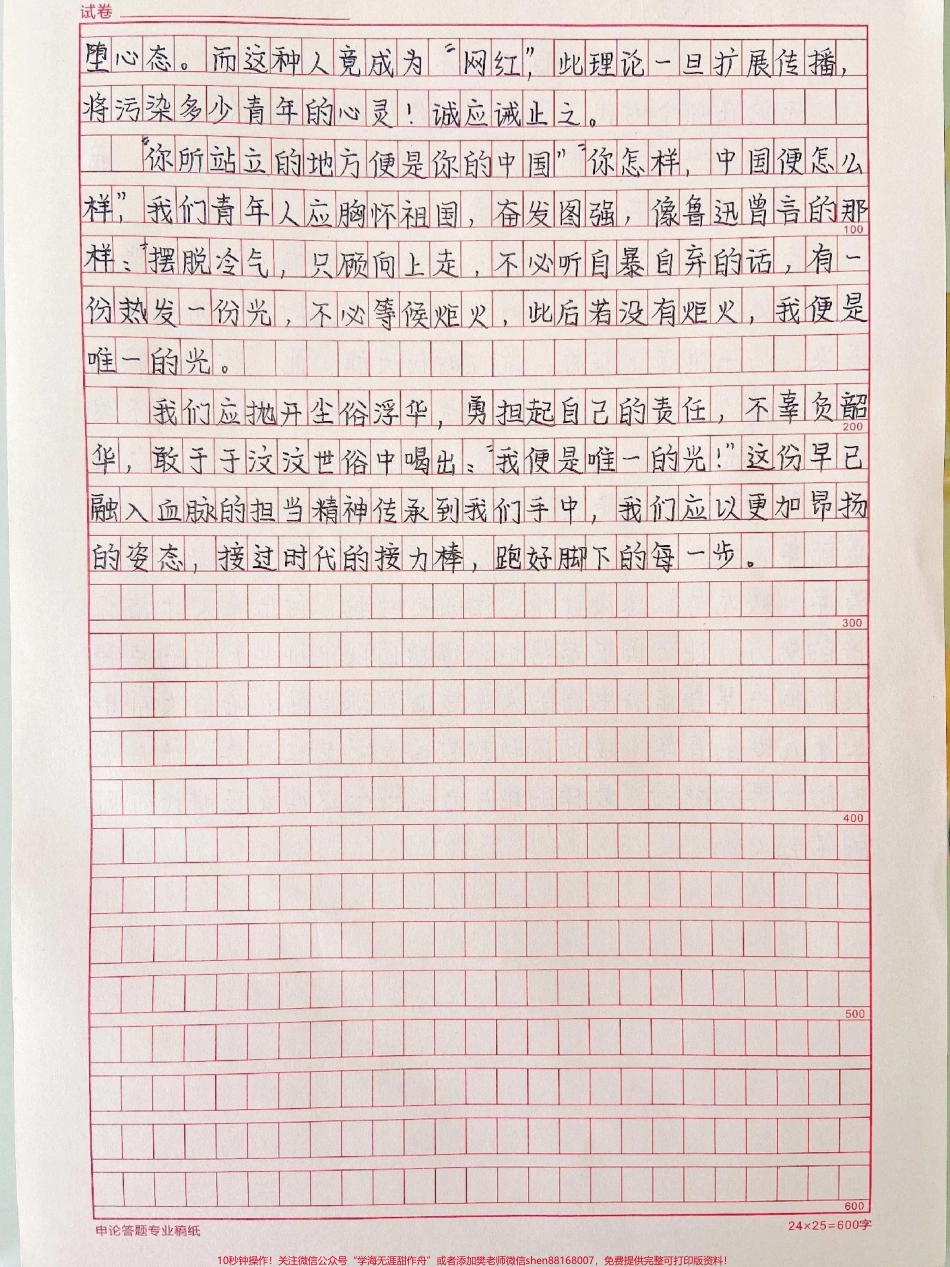 试卷
堕心态。而这种人竟成为“网红”，此理论一旦扩展传播，
将污染多少青年的心灵！诚应诫止之。
“你所站立的地方便是你的中国”“你怎样，中国便怎么
样”，我们青年人应胸怀祖国，奋发图强，像鲁迅曾言的那
100
样：“摆脱冷气，只顾向上走，不必听自暴自弃的话，有一
份热发一份光，不必等候炬火，此后若没有炬火，我便是
唯一的光。
我们应抛开尘俗浮华，勇担起自己的责任，不辜负韶
200
华，敢于于汶汶世俗中喝出：“我便是唯一的光！”这份早已
融入血脉的担当精神传承到我们手中，我们应以更加昂扬
的姿态，接过时代的接力棒，跑好脚下的每一步。
300
400
500
600
申论答题专业稿纸
24×25=600字
10秒钟操作！关注微信公众号“学海无涯甜作舟”或者添加樊老师微信shen88168007，免费提供完整可打印版资料！